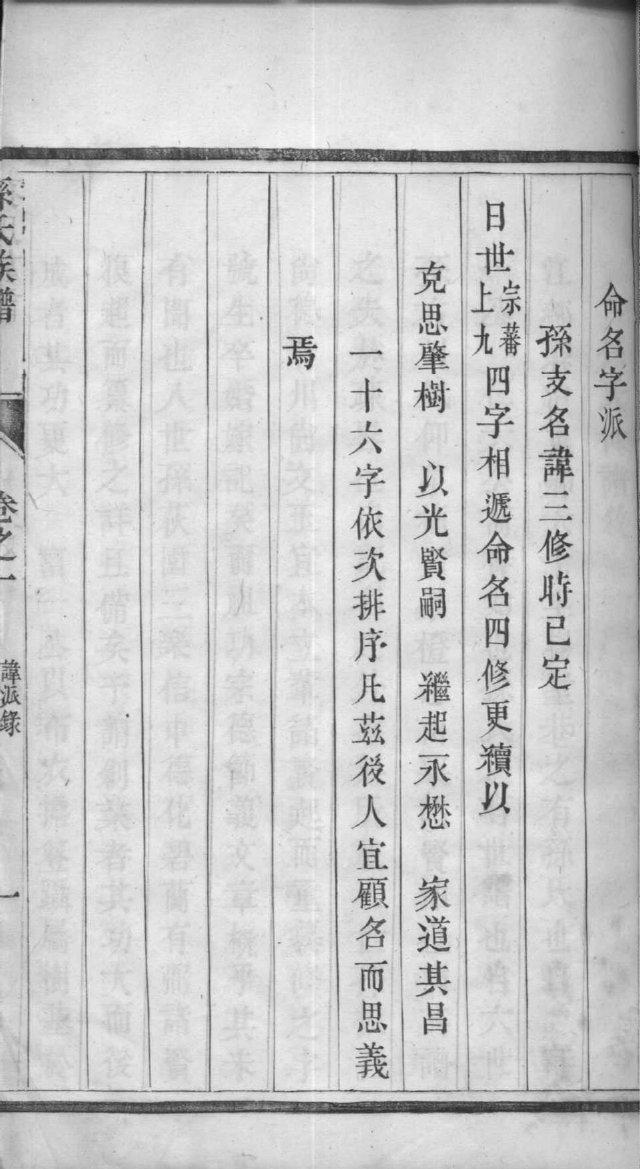 命名字派
孫支名諱三修時已定
日世宗蕃上九四字相遞命名四修更續以
克思肇樹　以光賢嗣　繼起永懋　家道其昌
一十六字依次排序凡茲後人宜顧名而思義
焉
孫氏族譜　卷之一　諱派錄　一